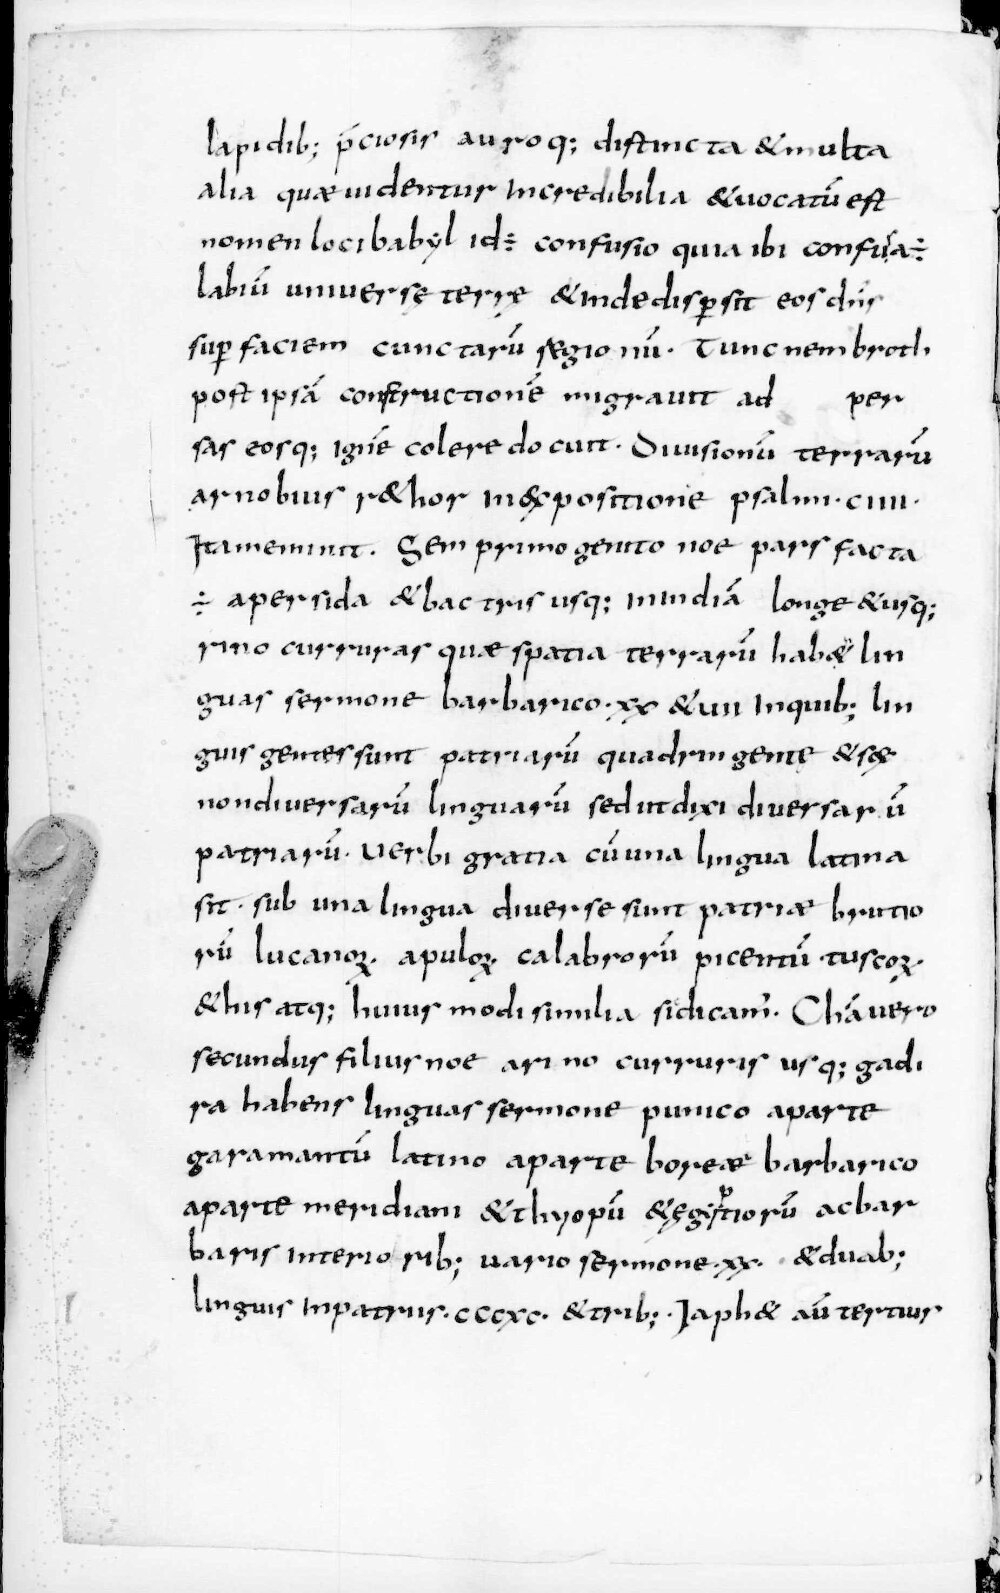 lapidib; p̄ciosis auroq; distincta & multa
alia quæ uidentur incredibilia & uocatū est
nomen loci babẏl id÷ confusio quia ibi confusa÷
labiū universę terrę & inde disꝑsit eos dn̄s
suꝑ faciem cunctarū regionū. Tunc nembroth
post ipsā constructionē migrauit ad per
sas eosq; ignē colere docuit. Diuisionū terrarū
arnobius r&hor in expositione psalmi. ciiii.
Ita meminit. Sem primogenito noe pars facta
÷ apersida & bactris usq; in indiā longe & usq;
rino curruras quæ spatia terrarū hab& lin
guas sermone barbarico. xx & vii inquib; lin
guis gentes sunt patriarū quadringentę & sex
non diversarū linguarū sed ut dixi diversarū
patriarū. Uerbi gratia cū una lingua latina
sit. sub una lingua diverse sunt patriæ brutio
rū lucanoꝝ. apuloꝝ. calabrorū picentū. tuscoꝝ.
& his atq; huius modi similia si dicam̄. Chā uero
secundus filius noe a rino curruris usq; gadi
ra habens linguas sermone punico aparte
garamantū latino aparte boreæ barbarico
aparte meridiani &thyopū & ęgiptiorū ac bar
baris interiorib; uario sermone. xx. & duab;
linguis inpatriis. cccxc. & trib;. Japh& aū tertius